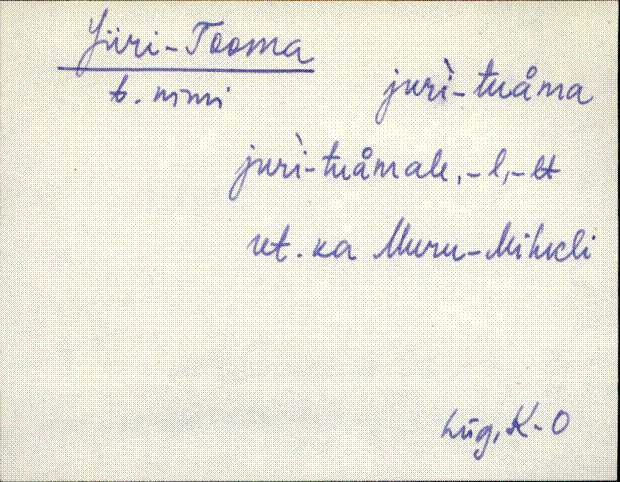 Jüri-Tooma
t. nimi
juri̇̀-tuåma
juri̇̀-tuåmale, -l, -lt
vt. ka Muru-Mihkli
Lüg, K-O